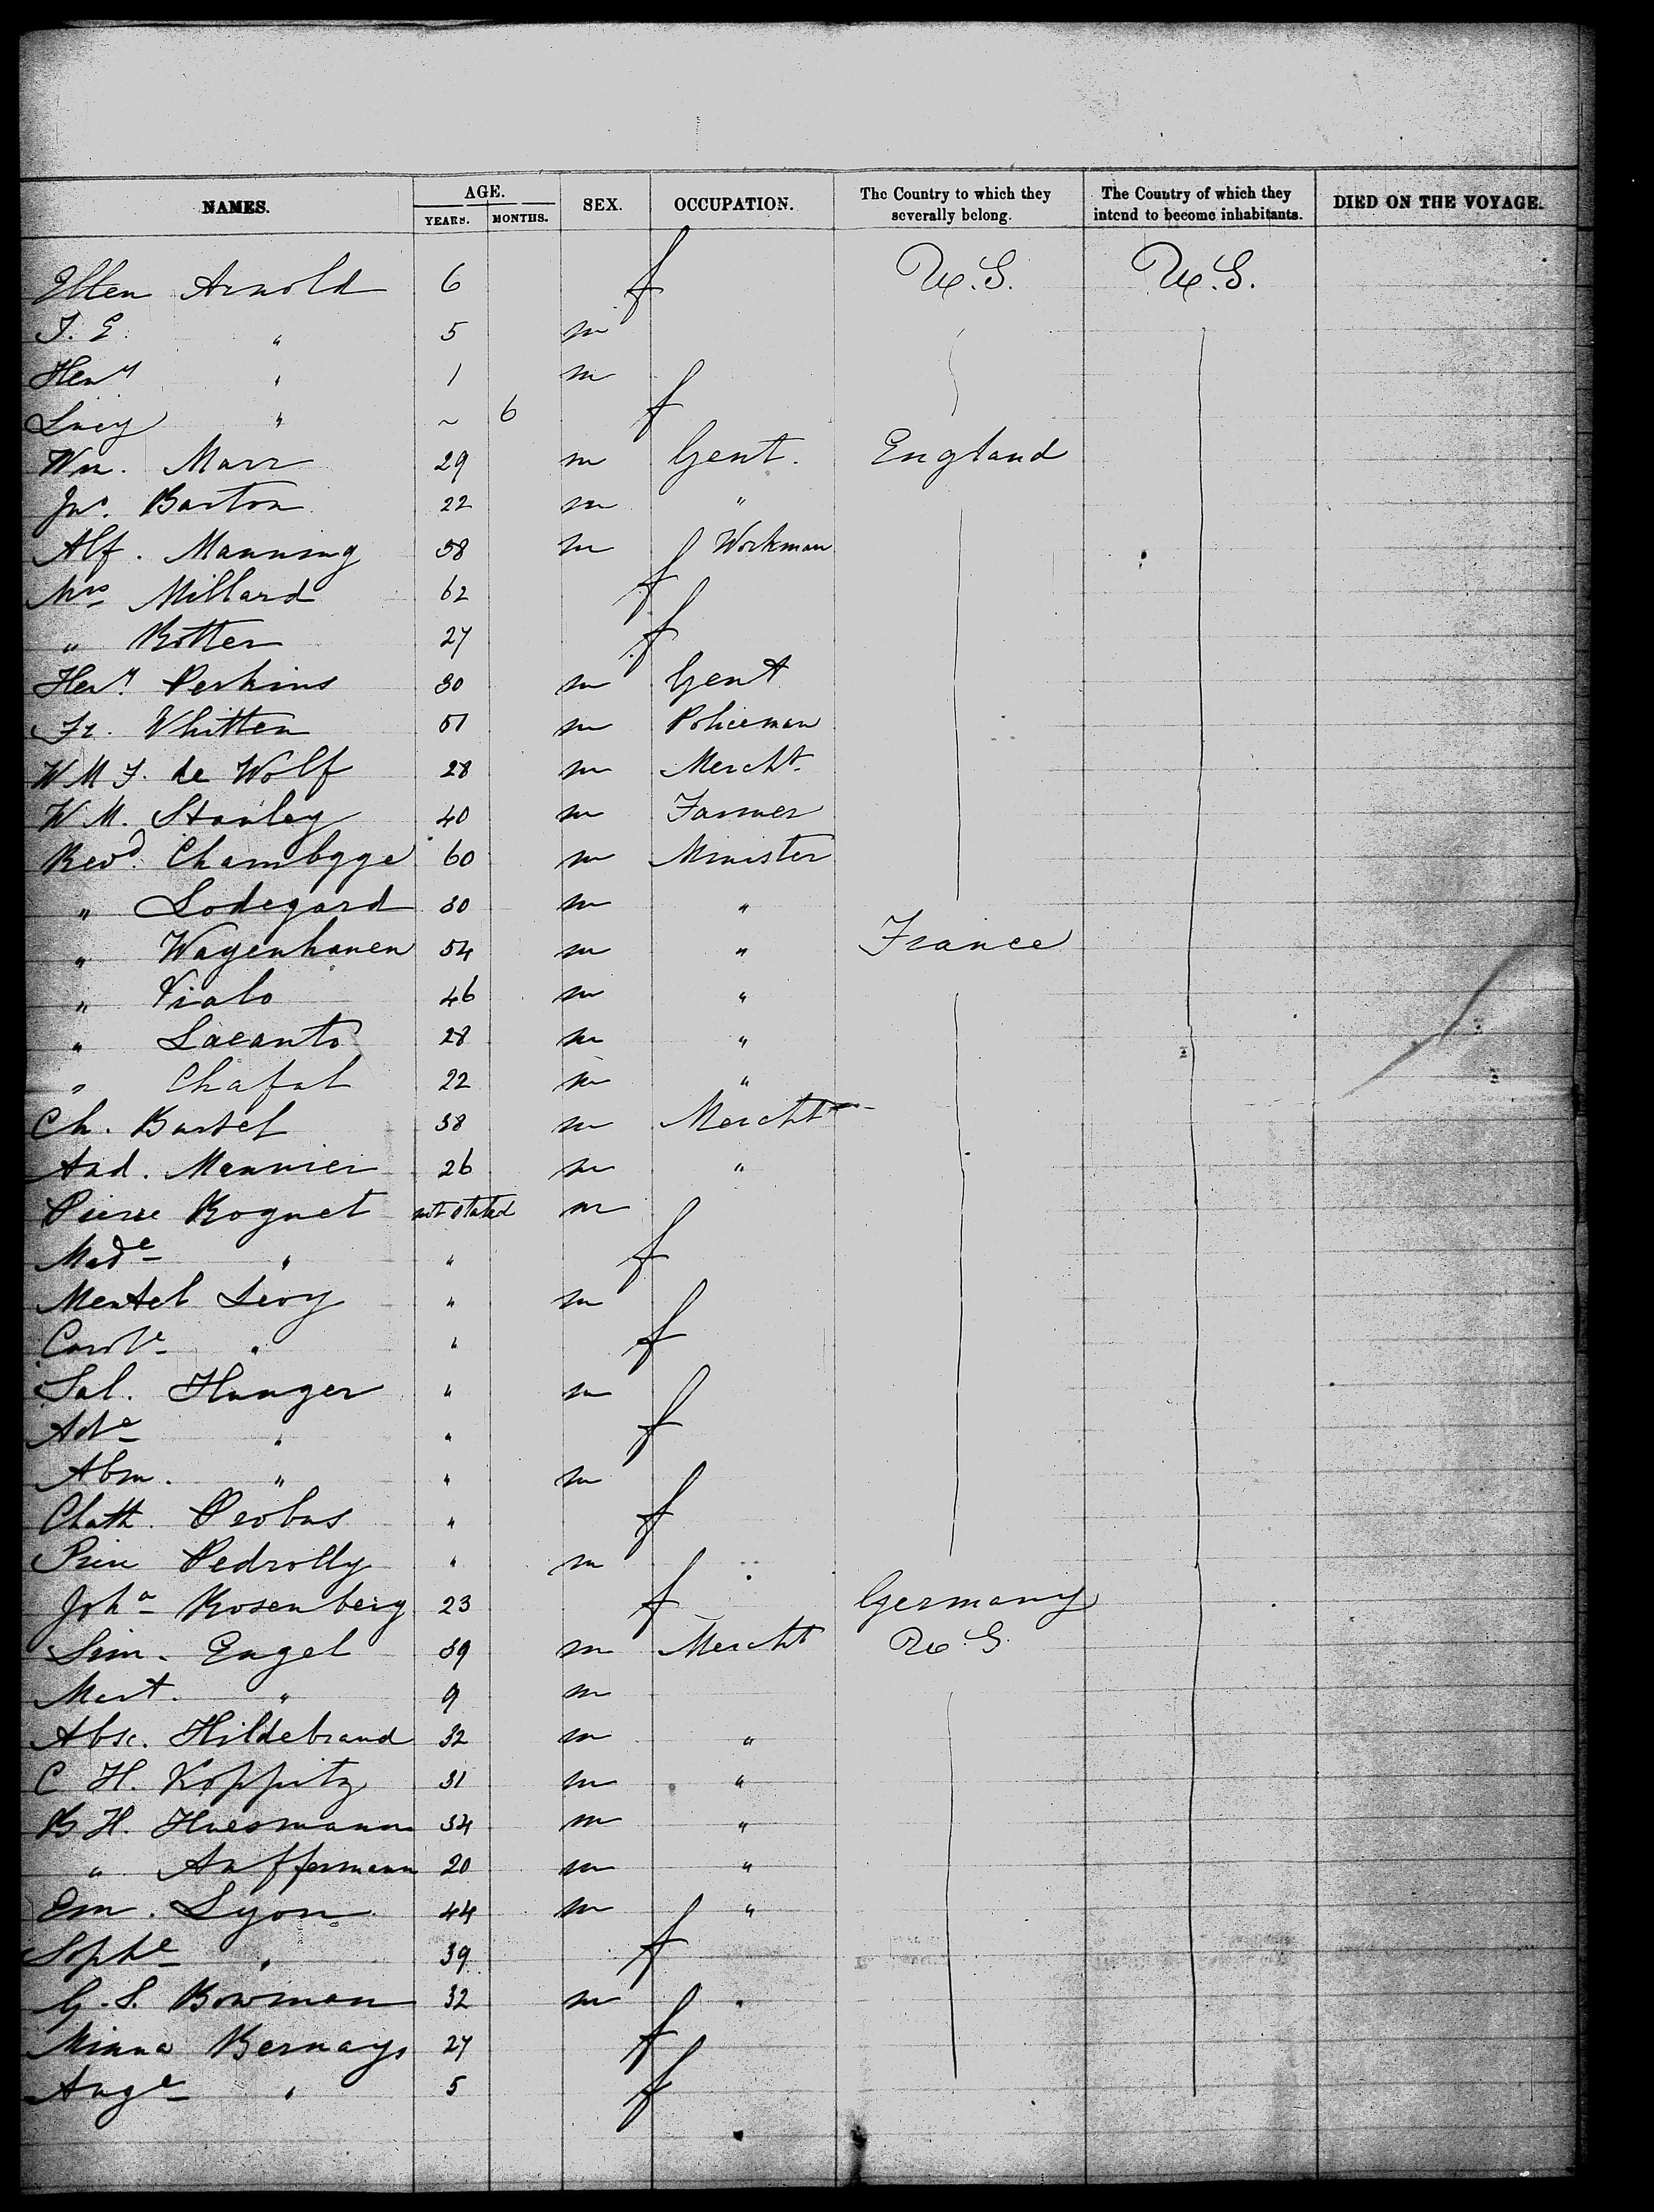 NAMES. AGE. SEX. OCCUPATION. The Country to which they severally belong. The Country of which they intend to become inhabitants. DIED ON THE VOYAGE.
YEARS. MONTHS.
Ellen Arnold 6 f U.S. U.S.
T. E. " 5 m
Heny " 1 m
Lucy " ~ 6 f
Wm. Marr 29 m Gent. England
Jno. Barton 22 m "
Alf. Manning 58 m Workman
Mrs Millard 62 f
" Rotter 27 f
Heny Perkins 30 m Gent
Fr. Whitten 51 m Policeman
W M F. de Wolf 28 m Mercht
W. M. Stanley 40 m Farmer
Revd. Chambygge 60 m Minister
" Lodegard 30 m "
" Wagenhanen 54 m " France
" Vialo 46 m "
" Lacanto 28 m "
" Chafal 22 m "
Ch. Bartel 38 m Mercht
And. Mannier 26 m "
Pierre Roguet not stated m
Made " " f
Mentel Levy " m
Carole " " f
Sal. Hunger " m
Ade " " f
Abm. " " m
Chath. Perbus " f
Prin Pedrolly " m
Joha Rosenberg 23 f Germany
Sim. Engel 39 m Mercht U.S.
Mart. " 9 m
Absc. Hildebrand 32 m "
C H. Koppitz 31 m "
B H. Huesmann 34 m "
" Auffermann 20 m "
Em. Lyon 44 m "
Sophe " 39 f
G. S. Bowman 32 m "
Minna Bernays 27 f
Auge " 5 f